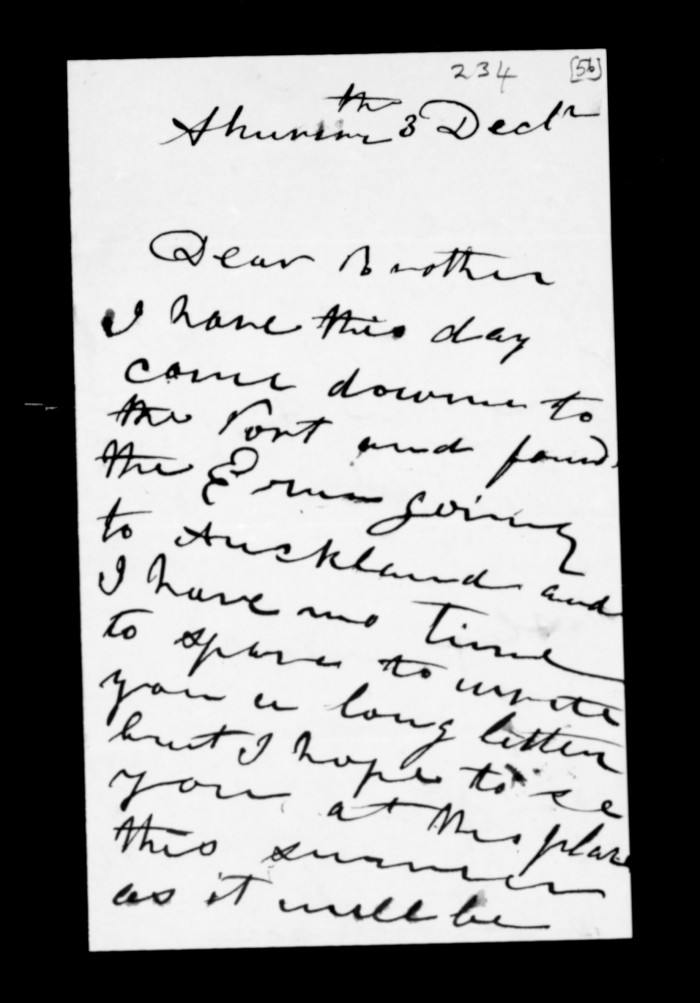 234 [56]
th
3 Decbr
Dear Brother
I have this day
come downe to
the Port and found
the Erin going
to Auckland and
I have no time
to spare to write
you a long letter
but I hope to se
you at this place
this summer
as it will be